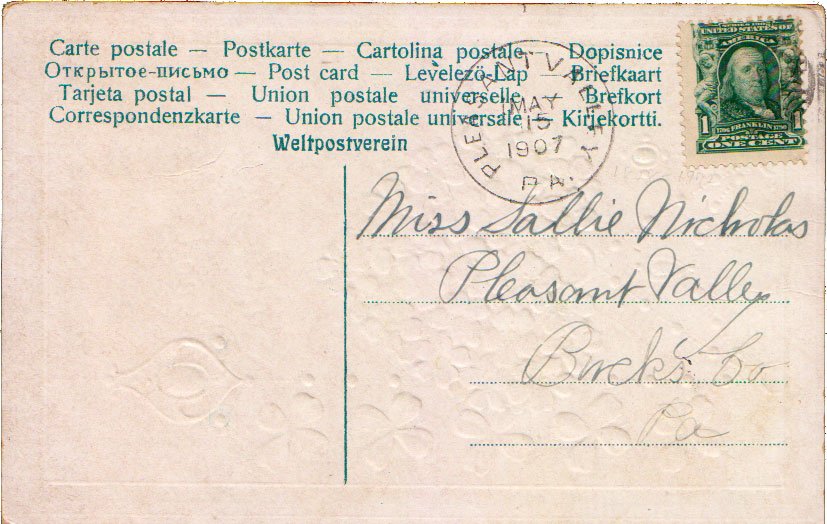 Carte postale — Postkarte — Cartolina postale — Dopisnice
Открытое-письмо — Post card — Levelező-Lap — Briefkaart
Tarjeta postal — Union postale universelle Brefkort
Correspondenzkarte — Union postale universale — Kirjekortti.
Weltpostverein
PLEASANT VALLEY
MAY
15
1907
PA.
UNITED STATES OF
AMERICA
1 FRANKLIN 1
POSTAGE
ONE CENT
Miss Sallie Nicholas
Pleasant Valley
Buck's Co
Pa